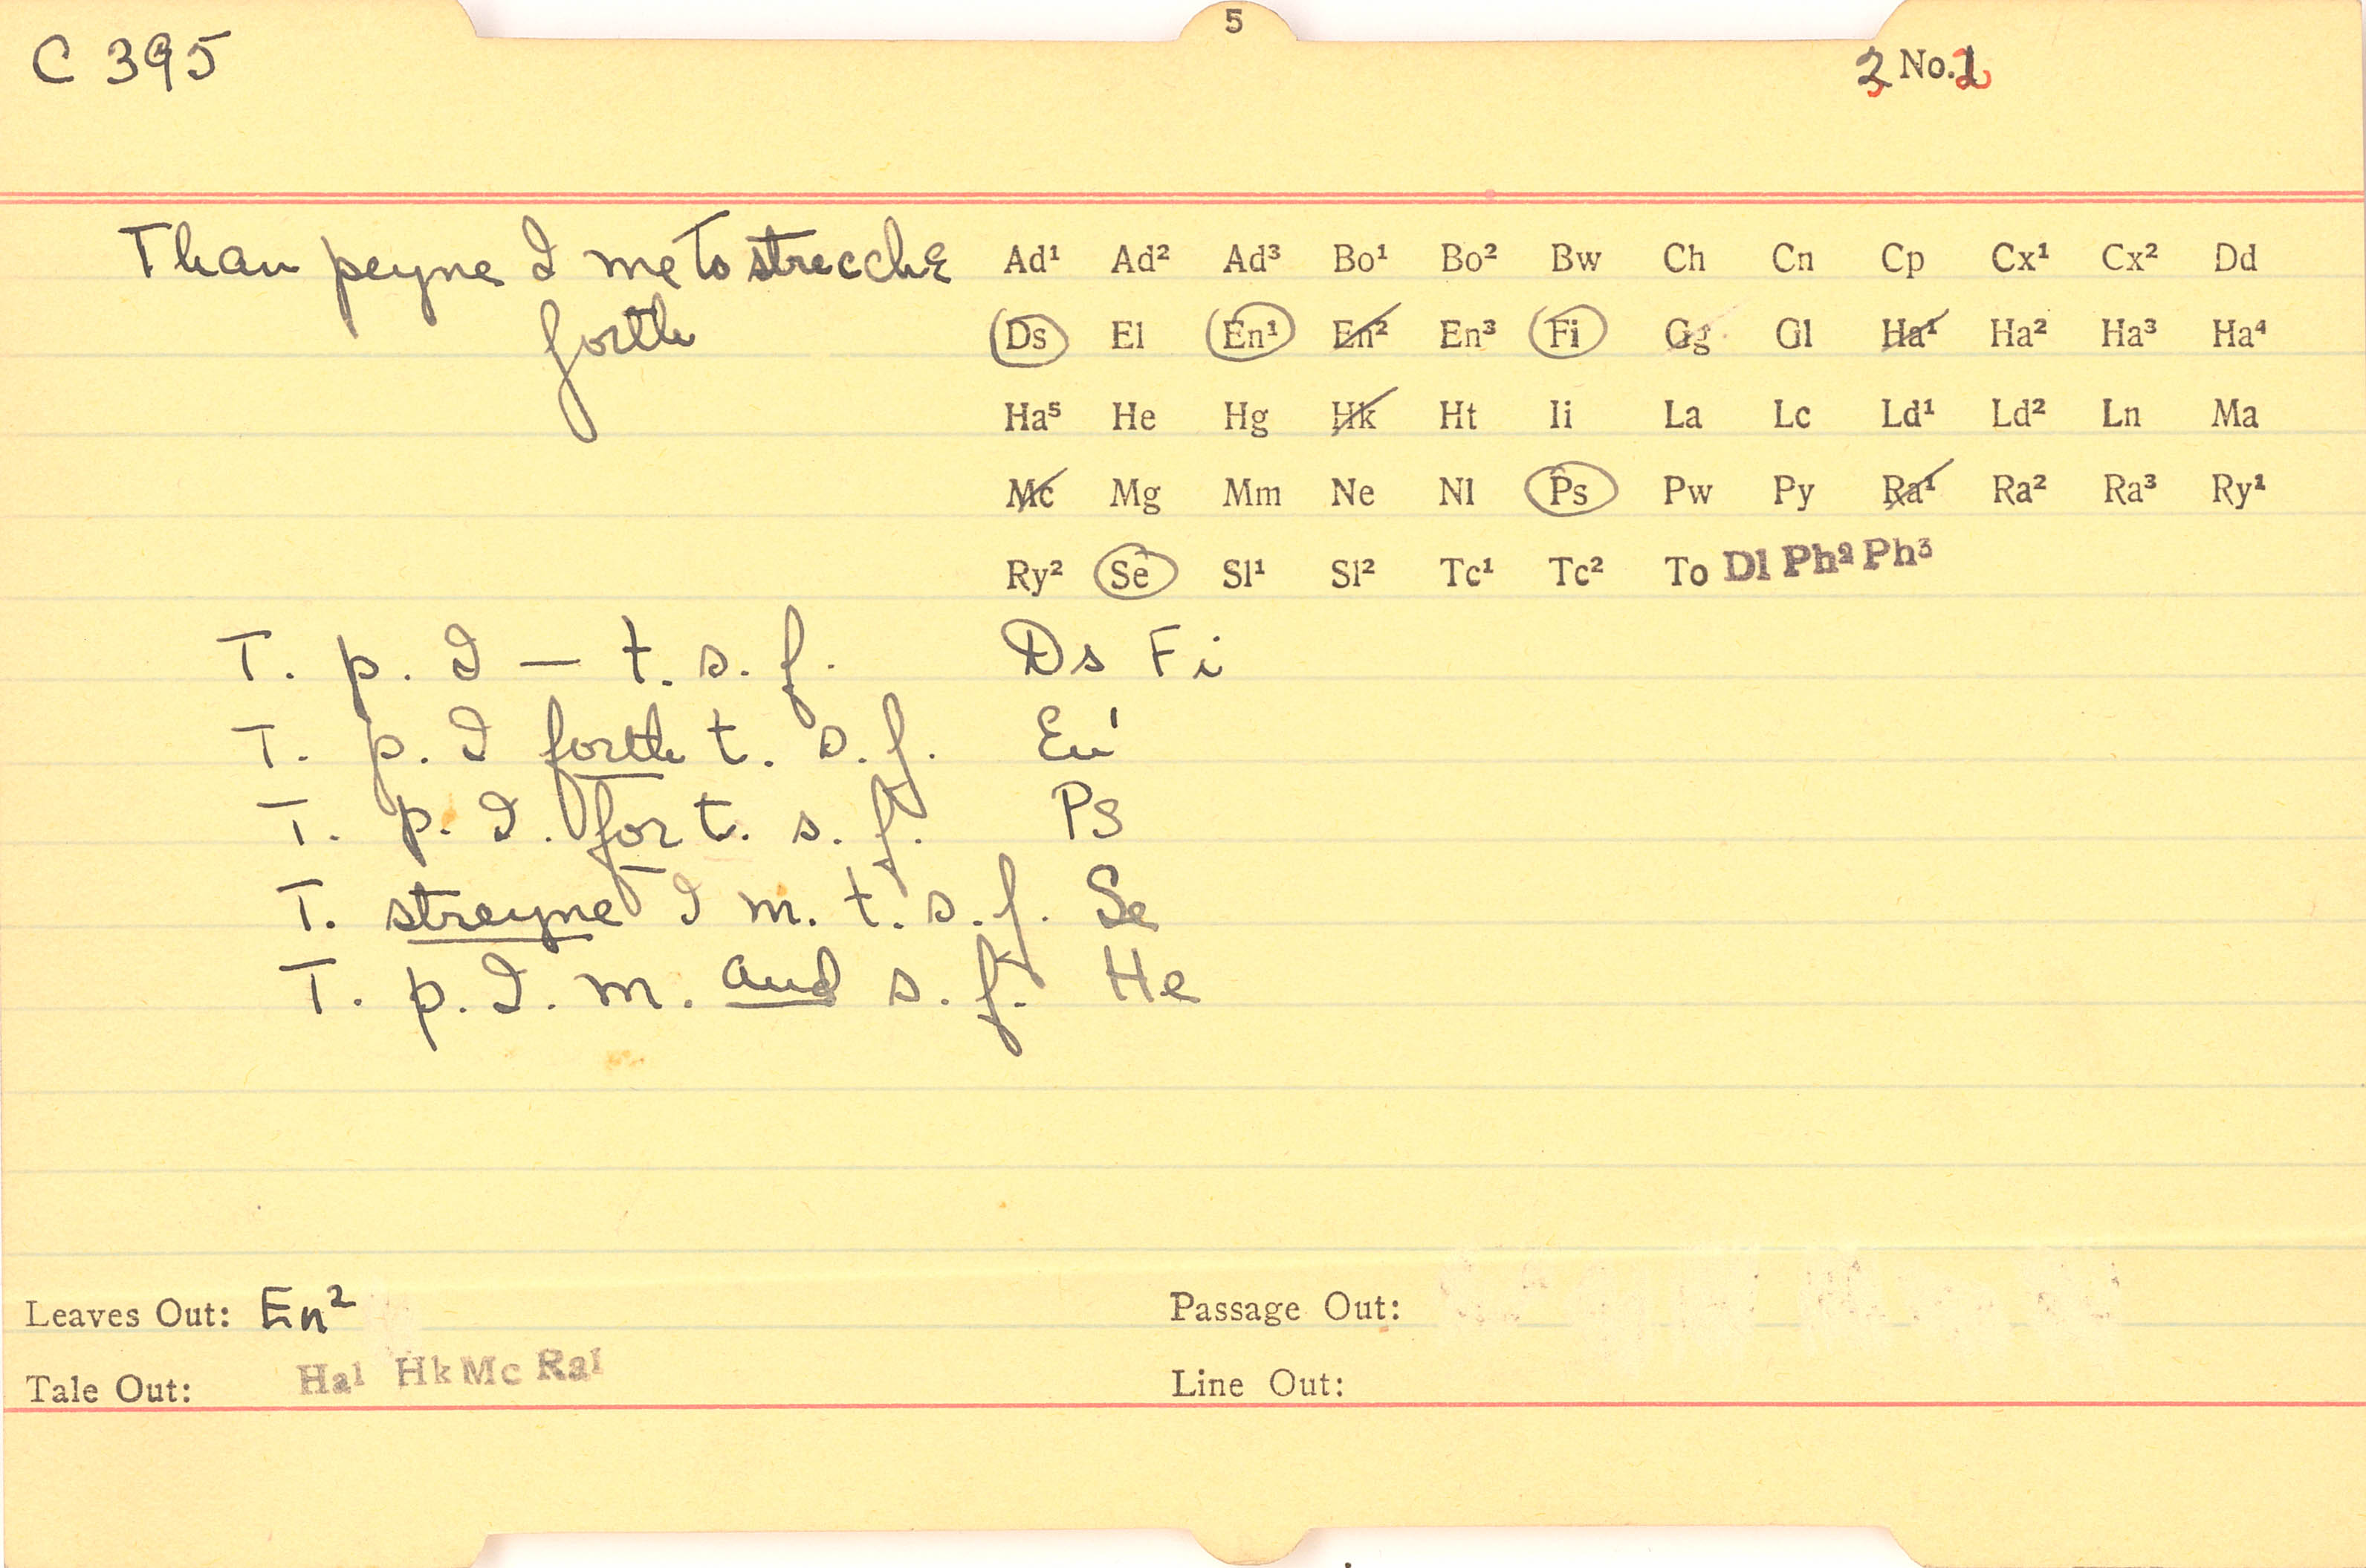 5
C 395
No.
Than peyne I me to strecche
forth
Ad¹ Ad² Ad³ Bo¹ Bo² Bw Ch Cn Cp Cx¹ Cx² Dd
Ds El En¹ En² En³ Fi Gg Gl Ha¹ Ha² Ha³ Ha⁴
Ha⁵ He Hg Hk Ht Ii La Lc Ld¹ Ld² Ln Ma
Mc Mg Mm Ne Nl Ps Pw Py Ra¹ Ra² Ra³ Ry¹
Ry² Se Sl¹ Sl² Tc¹ Tc² To Dl Ph² Ph³
T. p. I — t. s. f. Ds Fi
T. p. I forth t. s. f. En¹
T. p. I. for t. s. f. Ps
T. streyne I m. t. s. f. Se
T. p. I. m. and s. f. He
Leaves Out: En²
Passage Out:
Tale Out: Ha¹ Hk Mc Ra¹
Line Out: